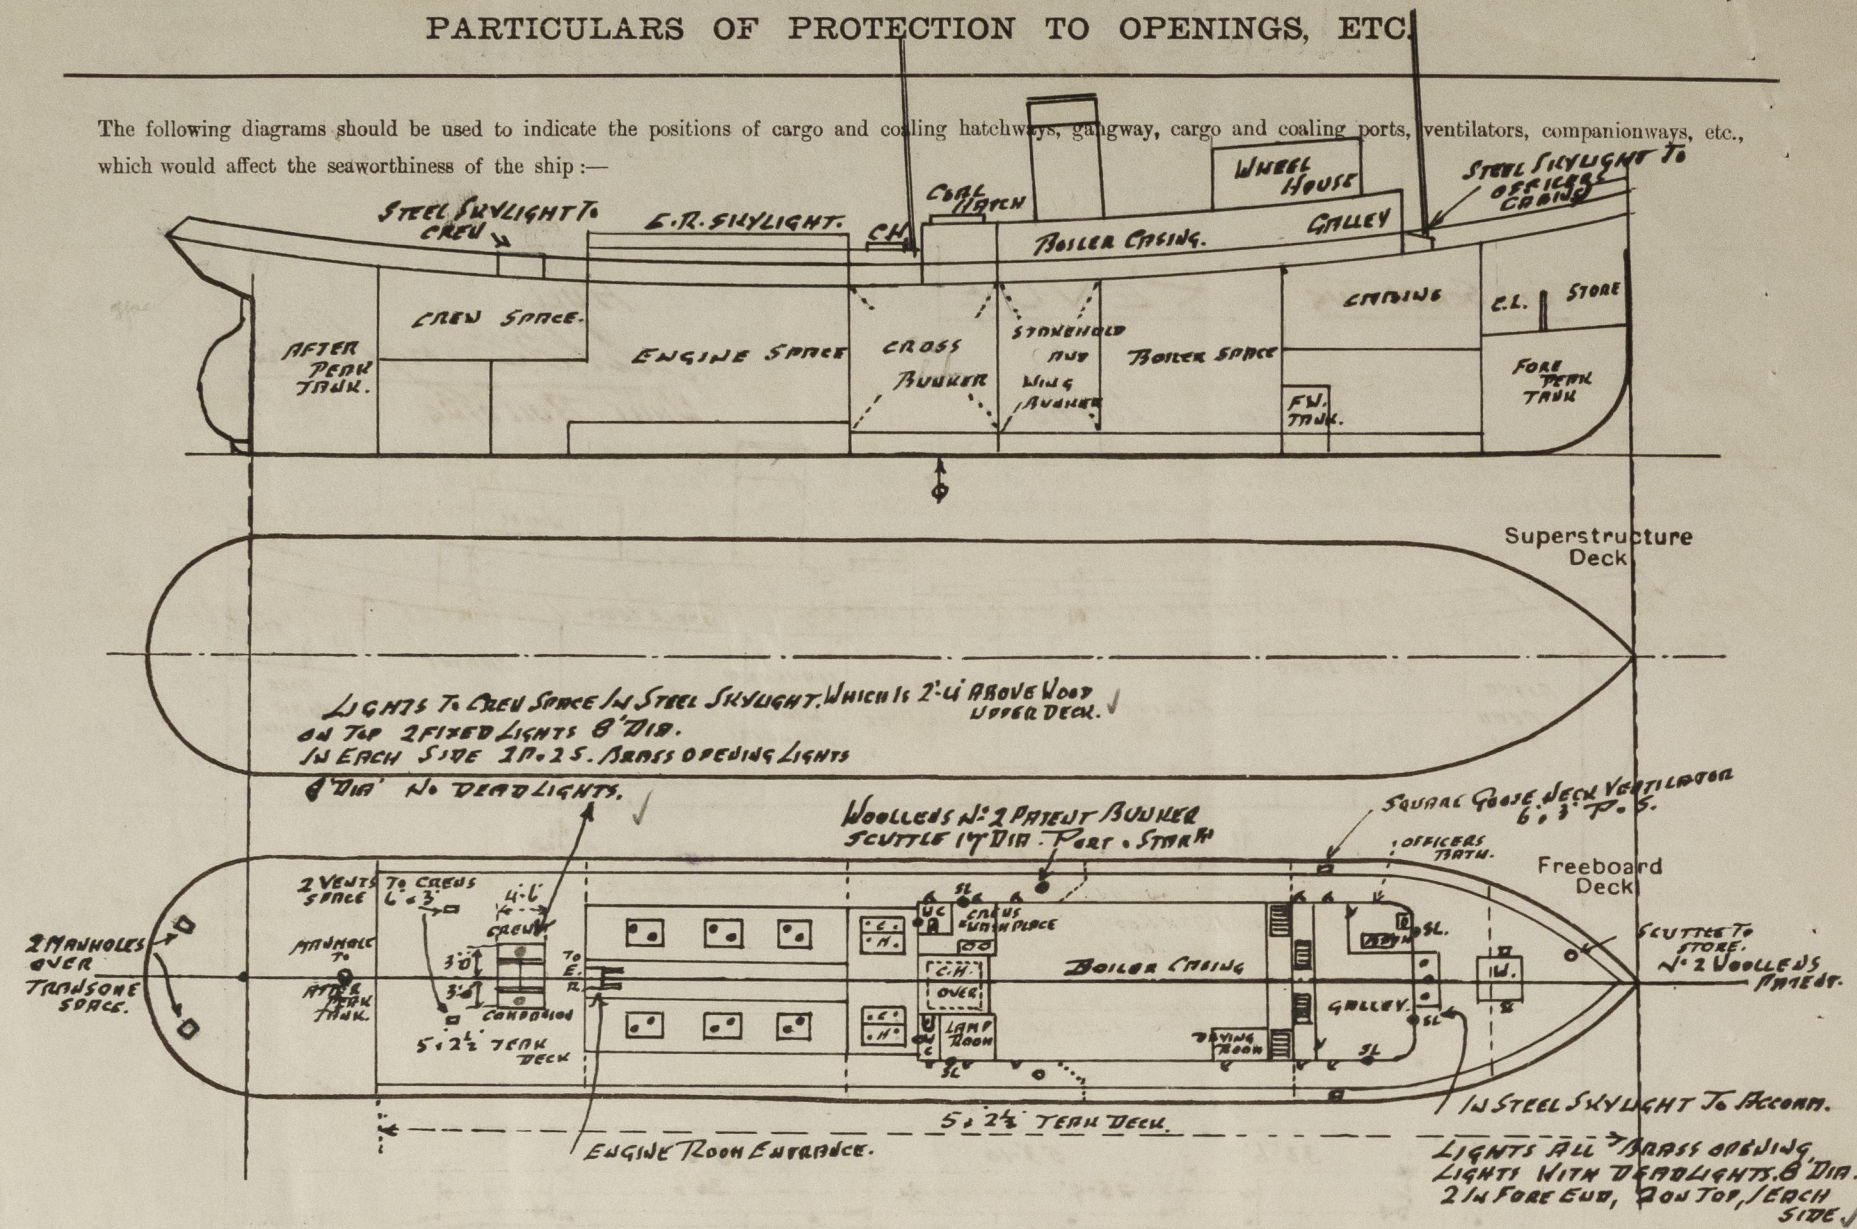 PARTICULARS OF PROTECTION TO OPENINGS, ETC.
The following diagrams should be used to indicate the positions of cargo and coaling hatchways, gangway, cargo and coaling ports, ventilators, companionways, etc.,
which would affect the seaworthiness of the ship :—
STEEL SKYLIGHT TO
OFFICERS
CABINS
WHEEL
HOUSE
COAL
HATCH
STEEL SKYLIGHT TO
CREW
E.R. SKYLIGHT.
C.H.
BOILER CASING.
GALLEY
CREW SPACE.
AFTER
PEAK
TANK.
ENGINE SPACE
CROSS
BUNKER
STOKEHOLD
AND
WING
BUNKER
BOILER SPACE
CABINS
F.W.
TANK.
C.L.
STORE
FORE
PEAK
TANK
Superstructure
Deck
LIGHTS TO CREW SPACE IN STEEL SKYLIGHT. WHICH IS 2'-4" ABOVE WOOD
UPPER DECK.
ON TOP 2 FIXED LIGHTS 8" DIA.
IN EACH SIDE 2P. 2S. BRASS OPENING LIGHTS
8" DIA NO DEADLIGHTS.
WOOLLENS No 2 PATENT BUNKER
SCUTTLE 17" DIA. PORT & STARD
SQUARE GOOSE NECK VENTILATOR
6" x 3" P. & S.
OFFICERS
BATH.
Freeboard
Deck
2 VENTS TO CREWS
SPACE 6" x 3"
4'-6"
CREWS
2 MANHOLES
OVER
TRANSOME
SPACE.
MANHOLE
TO
AFTER
PEAK
TANK.
3'0"
3'0"
COMPANION
5 x 2½" TEAK
DECK
TO
E.
R.
C.
H.
C.
H.
WC
SL
CREWS
WASHPLACE
C.H.
OVER
LAMP
ROOM
WC
SL
BOILER CASING
DRYING
ROOM
BATH
SL.
GALLEY.
SL
SL
W.
SCUTTLE TO
STORE.
No 2 WOOLLENS
PATENT.
5 x 2½" TEAK DECK.
ENGINE ROOM ENTRANCE.
IN STEEL SKYLIGHT TO ACCOM.
LIGHTS ALL BRASS OPENING
LIGHTS WITH DEADLIGHTS. 8" DIA.
2 IN FORE END, 2 ON TOP, 1 EACH
SIDE.